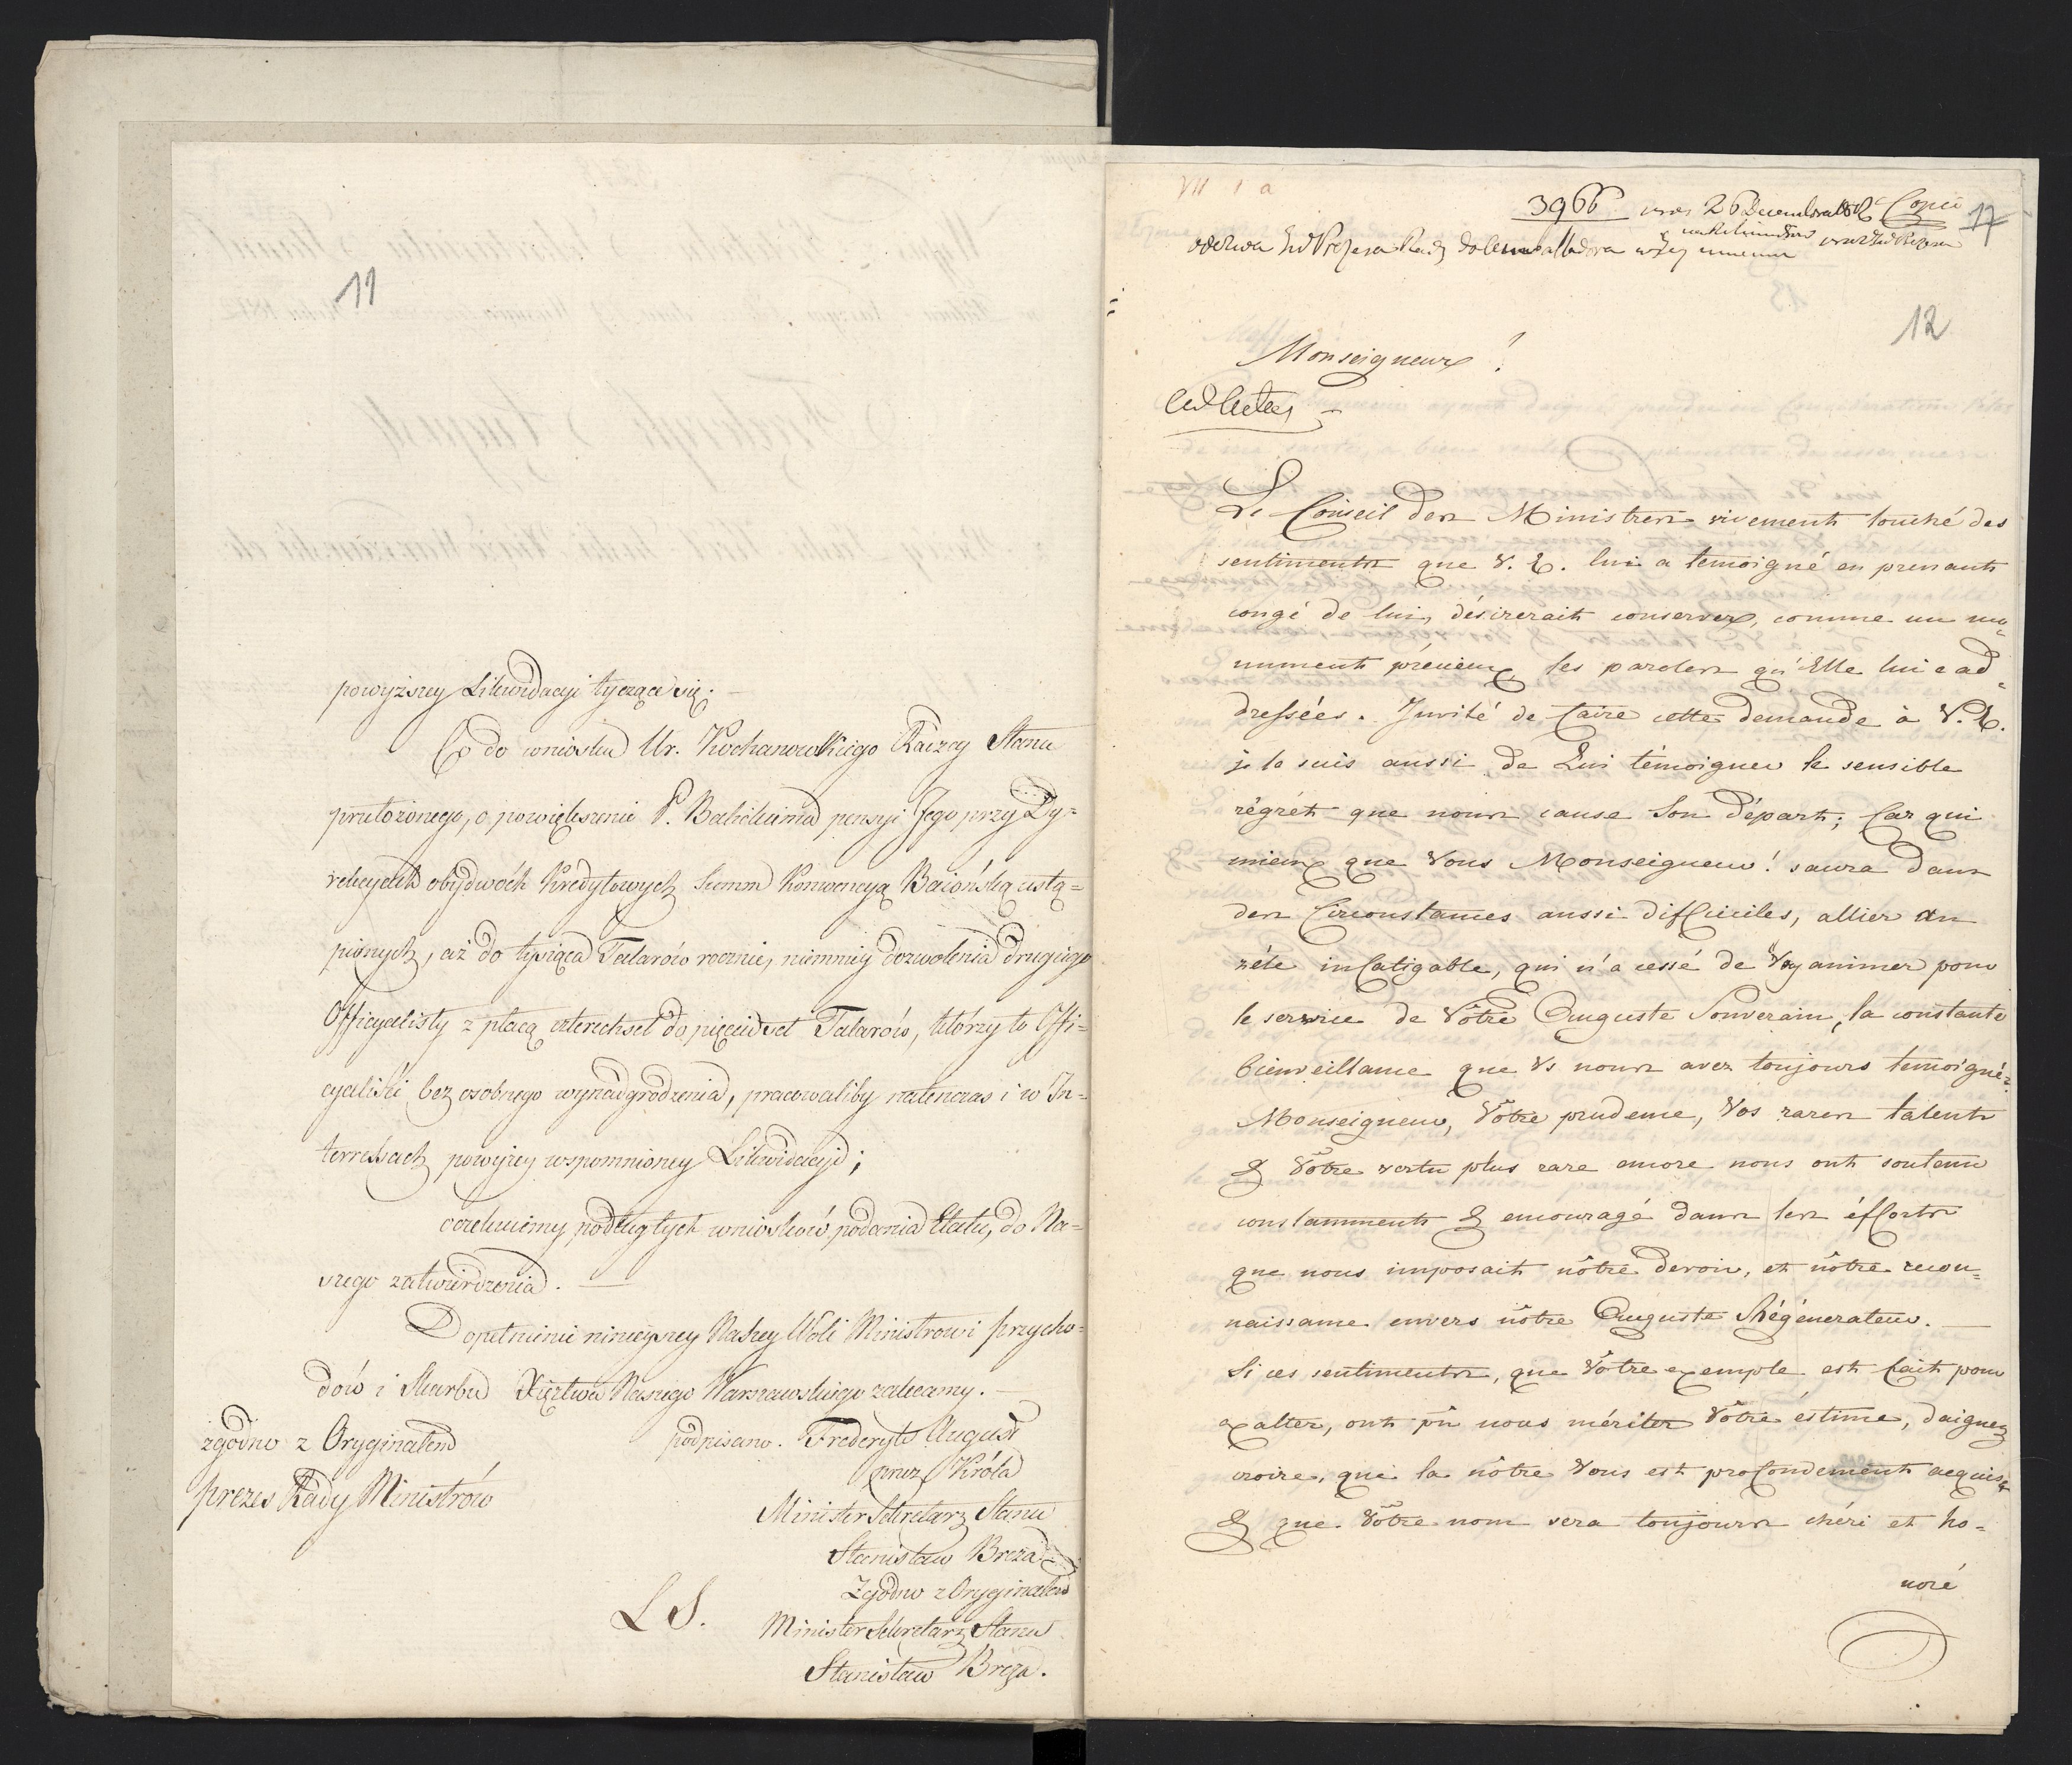 11
powyższey Likwidacyi tyczące się. —
Co do wniosku Ur. Kochanowskiego Radzcy Stanu
przełożonego, o powiększenie P. pensyi Jego przy Dy=
rekcyach obydwóch Kredytowych Summ Konwencyą Baiońską ustą=
pionych, aż do tysiąca Talarów rocznie, niemniey dozwolenia drugiego
Officyalisty z płacą czterechset do pięciuset Talarów, którzy to Offi=
cyaliści bez osobnego wynadgrodzenia, pracowaliby natenczas i w In=
terressach powyżey wspomnioney Likwidacyi;
oczekuiemy podług tych wniosków podania Etatu, do Na=
szego zatwierdzenia. —
Dopełnienie ninieyszey Naszey Woli Ministrowi przycho=
dów i Skarbu Xięztwa Naszego Warszawskiego zalecamy. —
zgodno z Oryginałem podpisano. Frederyk August
przez Króla
prezes Rady Ministrów
Minister Sekretarz Stanu
Stanisław Breza
Zgodno z Oryginałem
L S. Minister Sekretarz Stanu
Stanisław Breza.
VII 1 a
3966 26 Decembra Copia 17
odezwa Prezesa Rady do
12
Monseigneur!
Le Conseil des Ministres vivement touché des
sentiments que V. E. lui a temoigné en prenant
congé de lui, désirerait conserver, comme un mo=
nument précieux les paroles qu'Elle lui a ad=
dressées. Invité de faire cette demande à V. E.
je le suis aussi de Lui témoigner le sensible
régrét que nous cause Son départ; Car qui
mieux que Vous Monseigneur! saura dans
des Circonstances aussi difficiles, allier un
zéle infatigable, qui n'a cessé de Vs animer pour
le service de Vôtre Auguste Souverain, la constante
bienveillance que Vs nous avez toujours temoignée
Monseigneur, Vôtre prudence, Vos rares talents
& Vôtre vertu plus rare encore nous ont soutenu
constamment & encouragé dans les éfforts
que nous imposait nôtre devoir, et nôtre recon=
naissance envers nôtre Auguste Régénerateur. —
Si ces sentiments, que Vôtre exemple est fait pour
exalter, ont pû nous mériter Vôtre éstime, daignez
croire, que la nôtre Vous est profondement acquise
& que Vôtre nom sera toujours chéri et ho=
noré